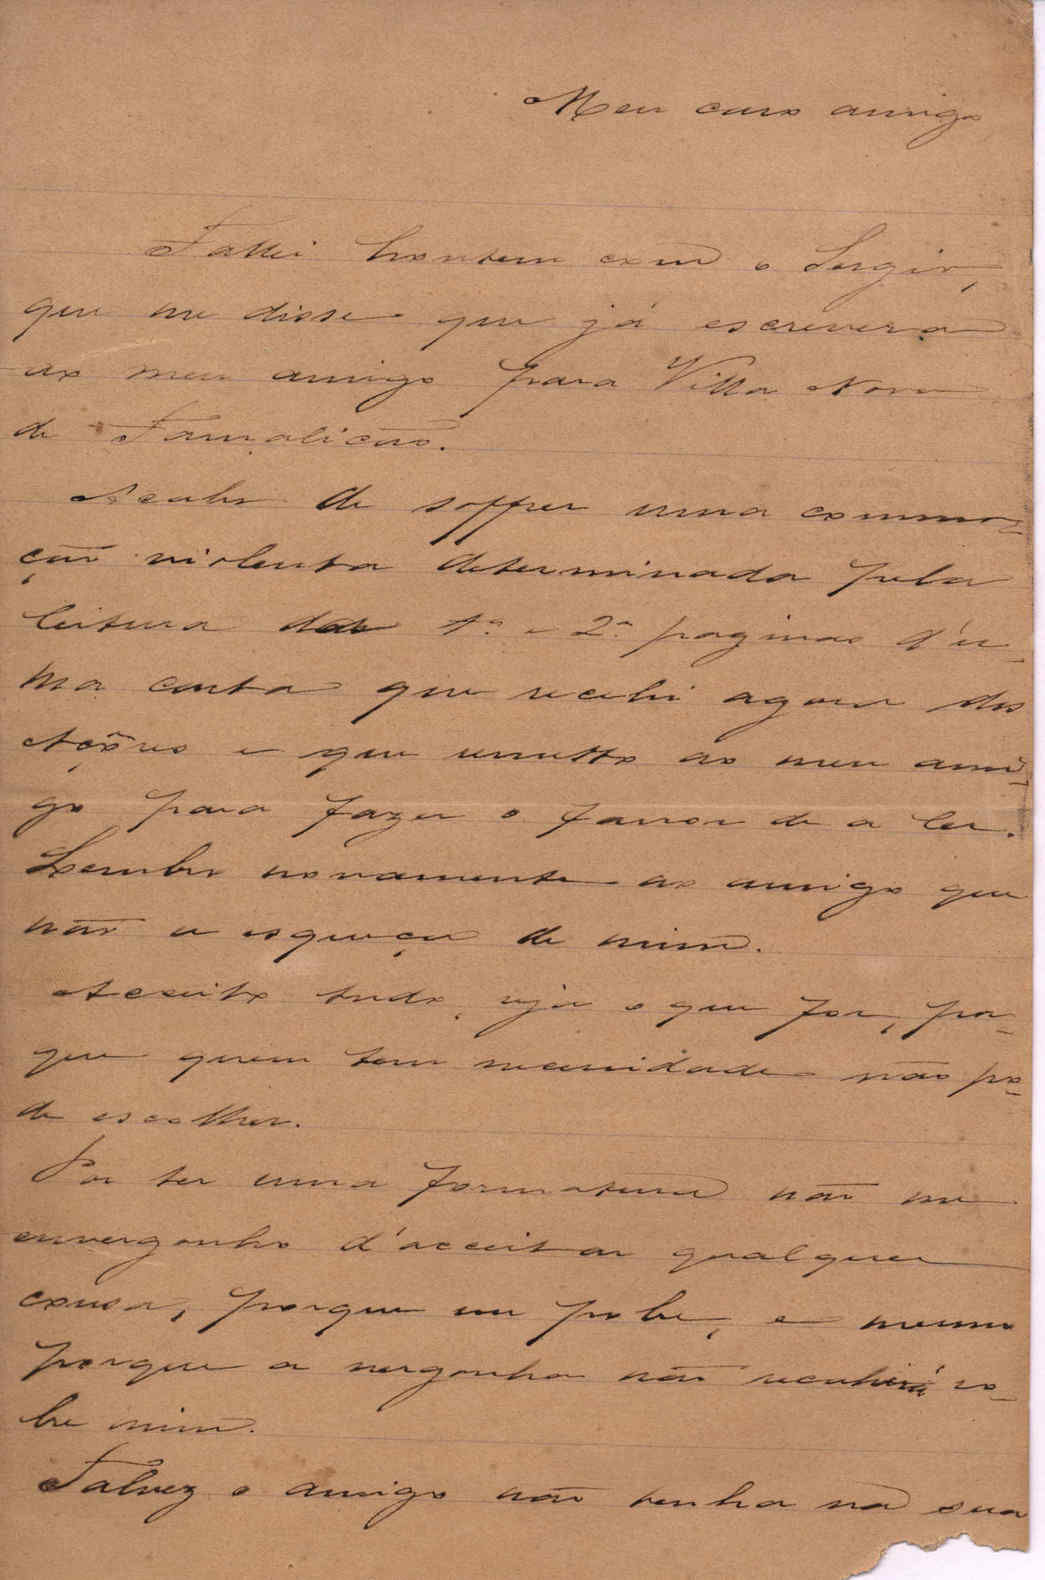 Meu caro amigo
Fallei hontem com o Sergio,
que me disse que já escrevera
ao meu amigo para Villa Nova
de Famalicão.
Acabo de soffrer uma commo-
ção violenta determinada pela
leitura das 1ª e 2ª paginas d'u-
ma carta que recebi agora dos
Açôres e que remetto ao meu ami-
go para fazer o favor de a ler.
Lembro novamente ao amigo que
não se esqueça de mim.
Acceito tudo, seja o que for, por-
que quem tem necessidade não po-
de escolher.
Por ter uma formatura não me
envergonho d'acceitar qualquer
cousa, porque sou pobre, e mesmo
porque a vergonha não recahirá so-
bre mim.
Talvez o amigo não tenha na sua